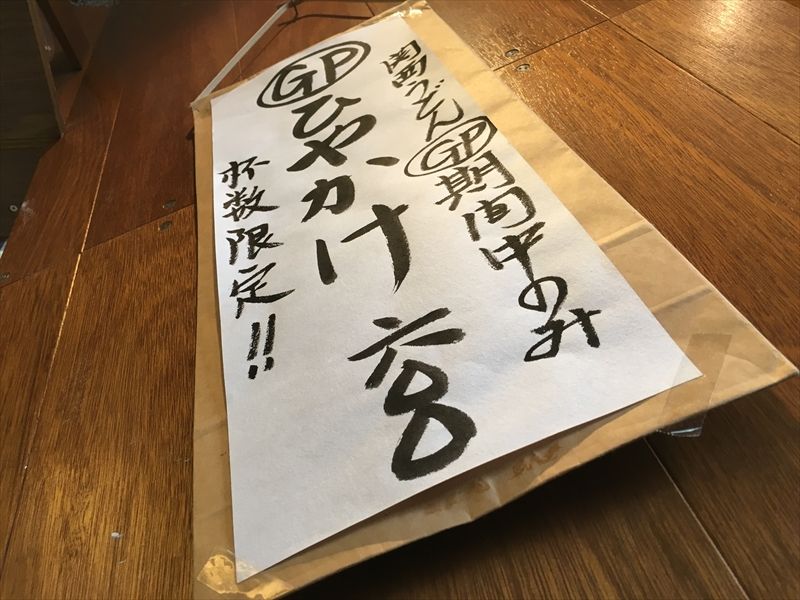 関西うどんGP期間中のみ
GPひやかけ 六〇〇
杯数限定!!